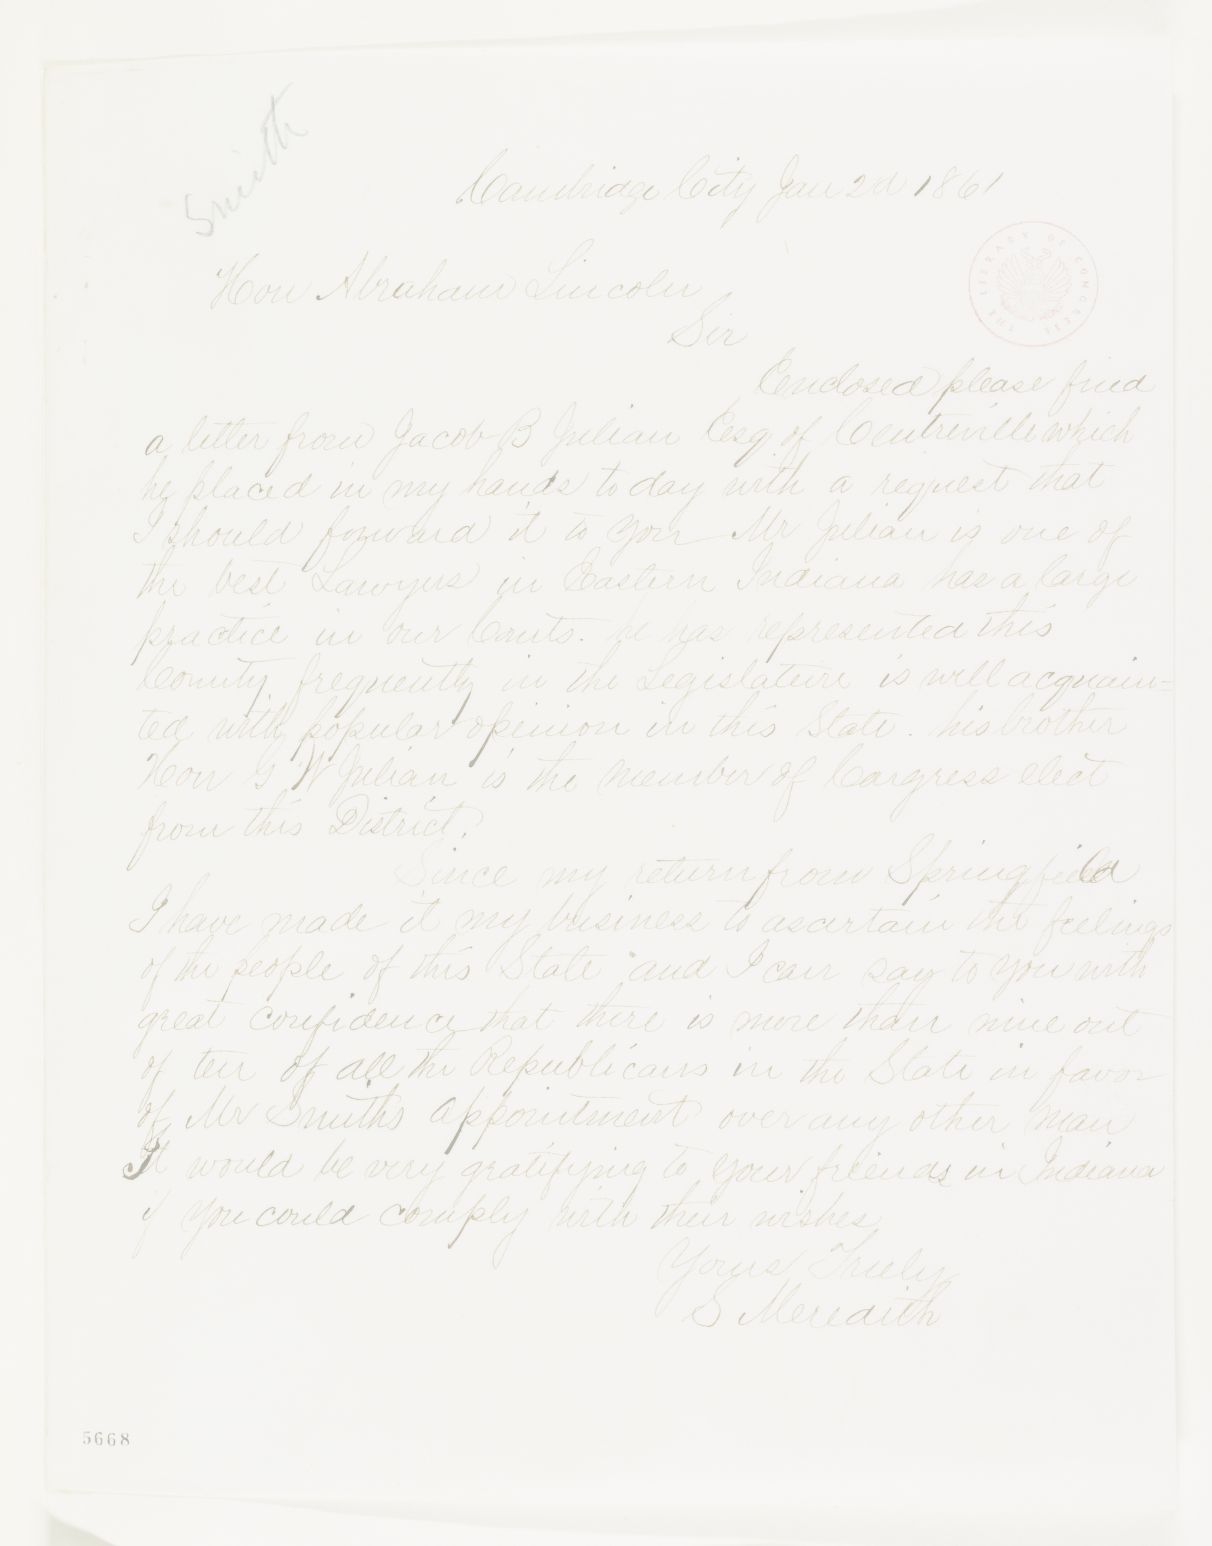 Smith
Cambridge City Jan 2d 1861
Hon Abraham Lincoln
Sir
Enclosed please find
a letter from Jacob B Julian Esq of Centreville which
he placed in my hands to day with a request that
I should forward it to you Mr Julian is one of
the best Lawyers in Eastern Indiana has a large
practice in our Courts. he has represented this
County frequently in the Legislature is well acquain=
ted with popular opinion in this State. his brother
Hon G W Julian is the member of Congress elect
from this District.
Since my return from Springfield
I have made it my business to ascertain the feelings
of the people of this State and I can say to you with
great confidence that there is more than nine out
of ten of all the Republicans in the State in favor
of Mr Smiths appointment over any other man
It would be very gratifying to your friends in Indiana
if you could comply with their wishes
Yours Truely
S Meredith
THE LIBRARY OF CONGRESS
5668